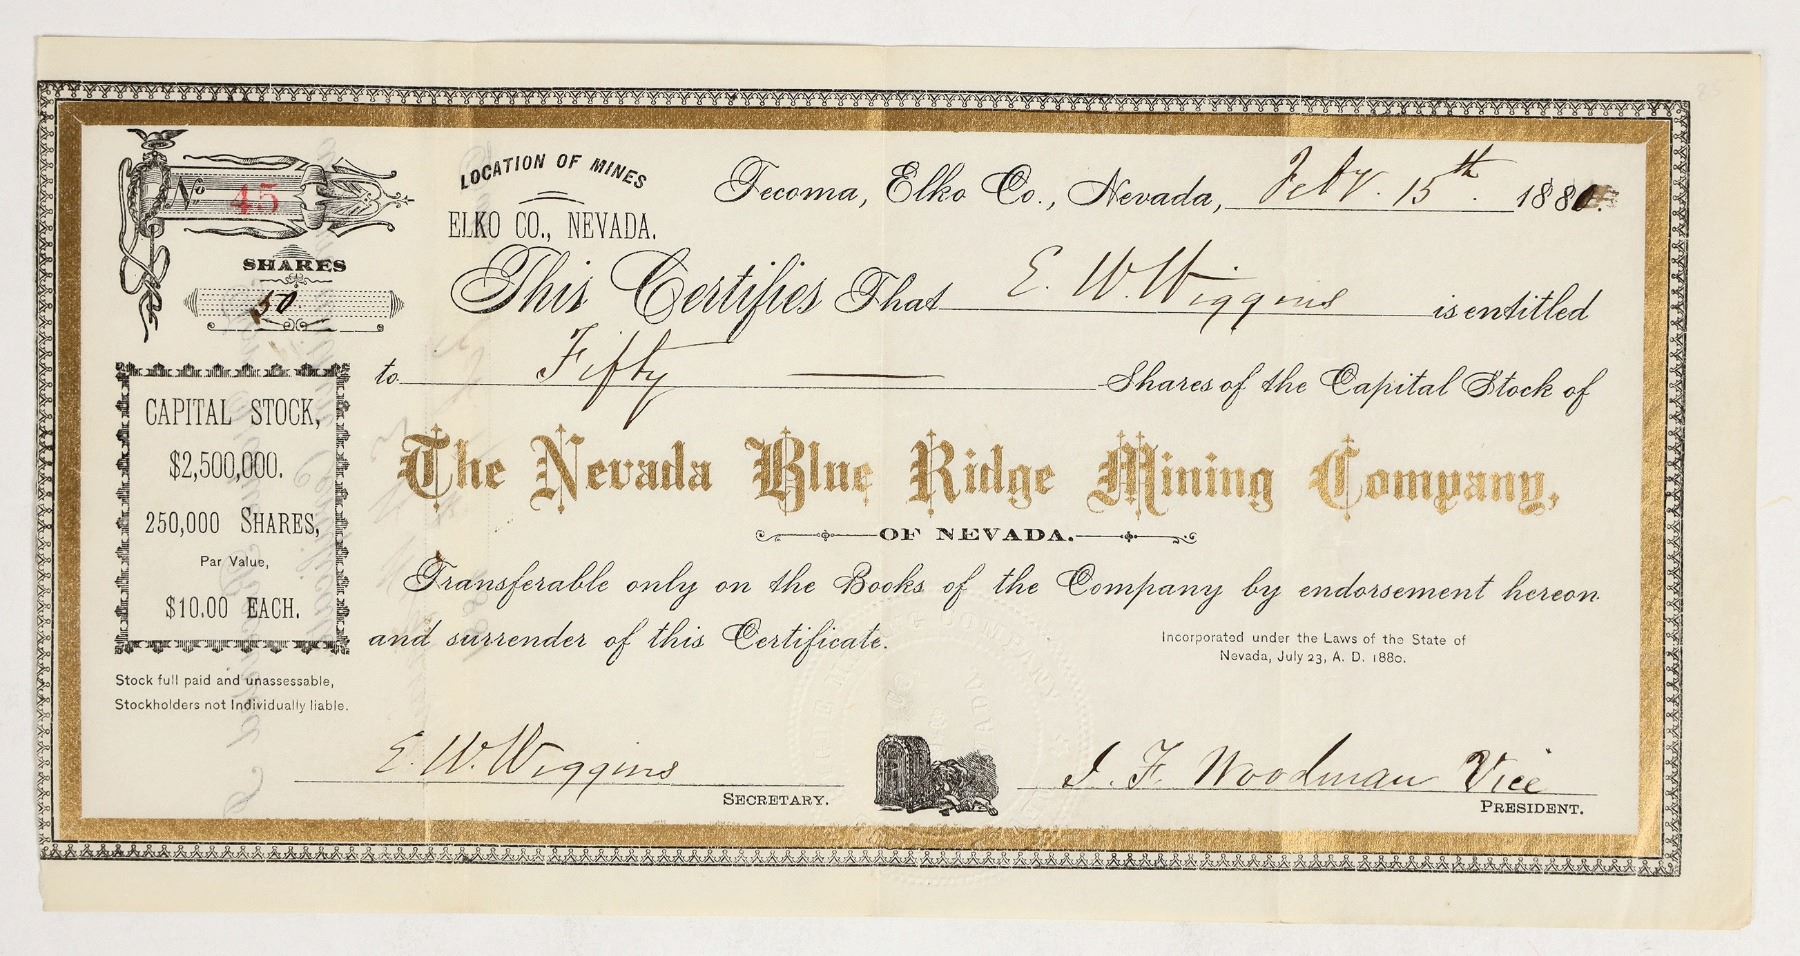 No 45
LOCATION OF MINES
ELKO CO., NEVADA.
Tecoma, Elko Co., Nevada, Feby. 15th. 188
SHARES
50
This Certifies That E. W. Wiggins is entitled
to Fifty Shares of the Capital Stock of
The Nevada Blue Ridge Mining Company,
OF NEVADA.
Transferable only on the Books of the Company by endorsement hereon
and surrender of this Certificate.
CAPITAL STOCK,
$2,500,000.
250,000 SHARES,
Par Value,
$10.00 EACH.
Stock full paid and unassessable,
Stockholders not Individually liable.
Incorporated under the Laws of the State of
Nevada, July 23, A. D. 1880.
E. W. Wiggins
SECRETARY.
J. F. Woodman Vice
PRESIDENT.